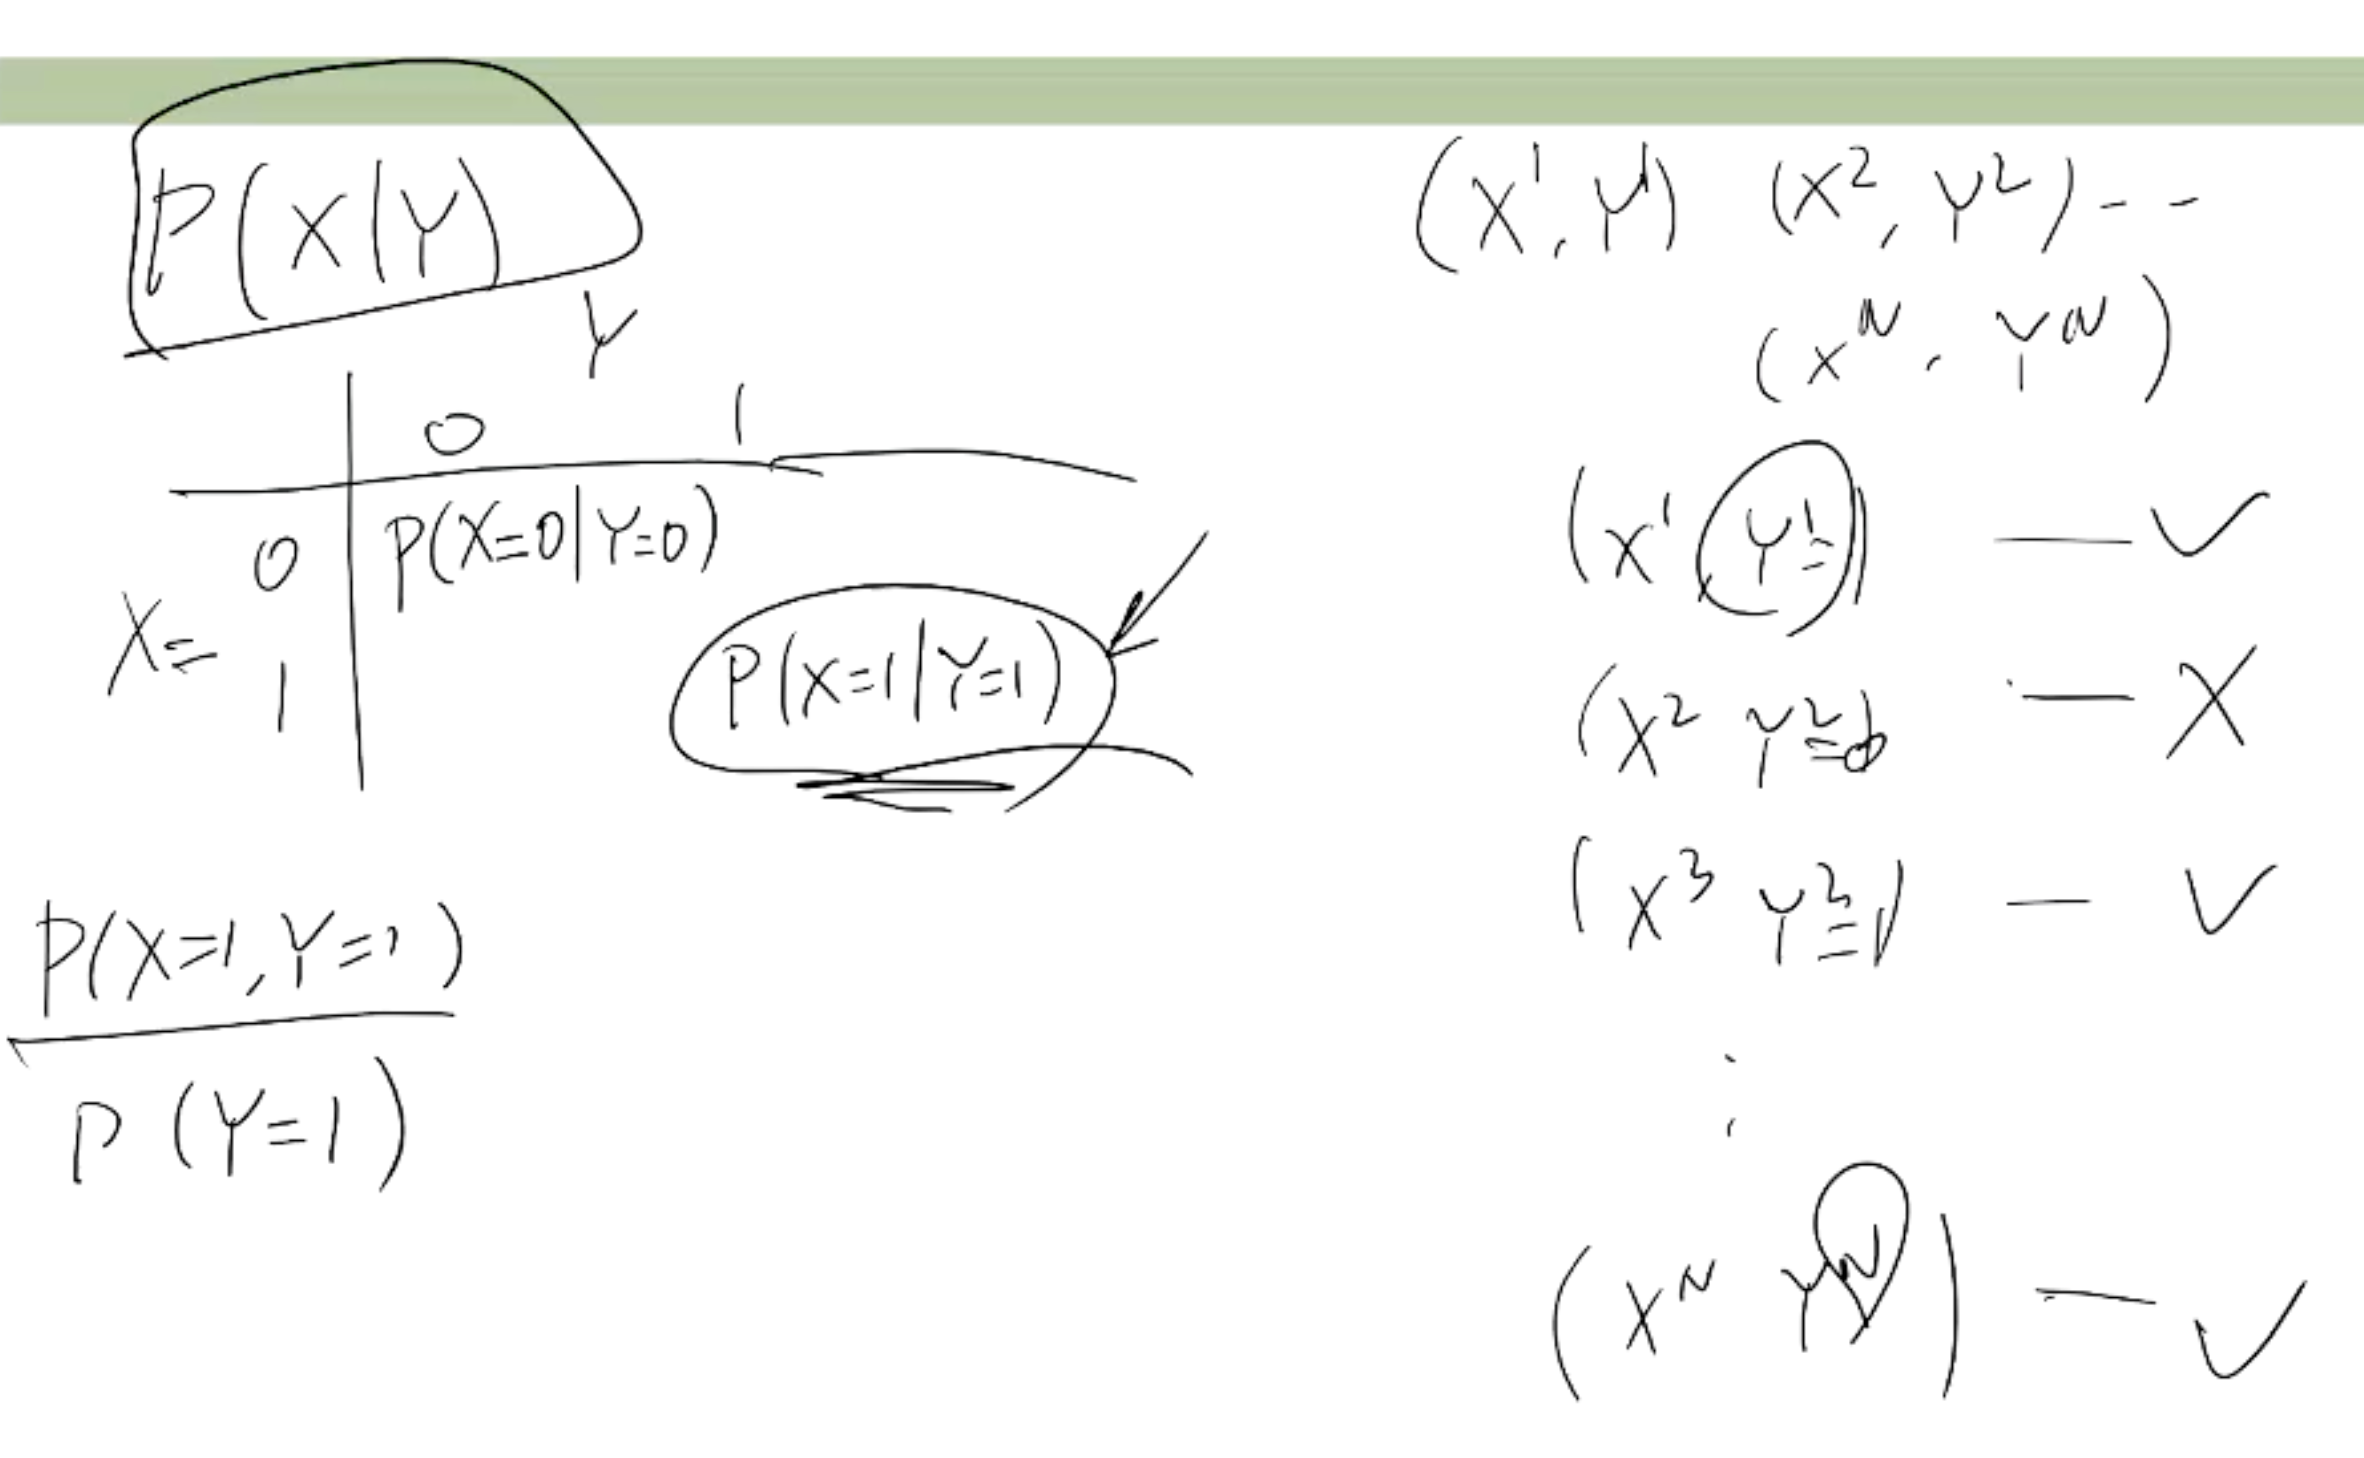 P(X|Y)
Y
0 1
X= 0 P(X=0|Y=0)
1 P(X=1|Y=1)
P(X=1, Y=1)
P(Y=1)
(X¹, Y¹) (X², Y²) - -
(Xᴺ, Yᴺ)
(X¹ Y¹=) — ✓
(X² Y²=0) — X
(X³ Y³=1) — ✓
:
(Xᴺ Yᴺ) — ✓